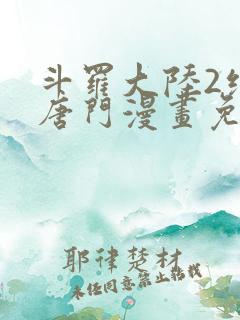 斗羅大陸2
唐門漫畫免
耶律楚材
未經同意禁止轉載